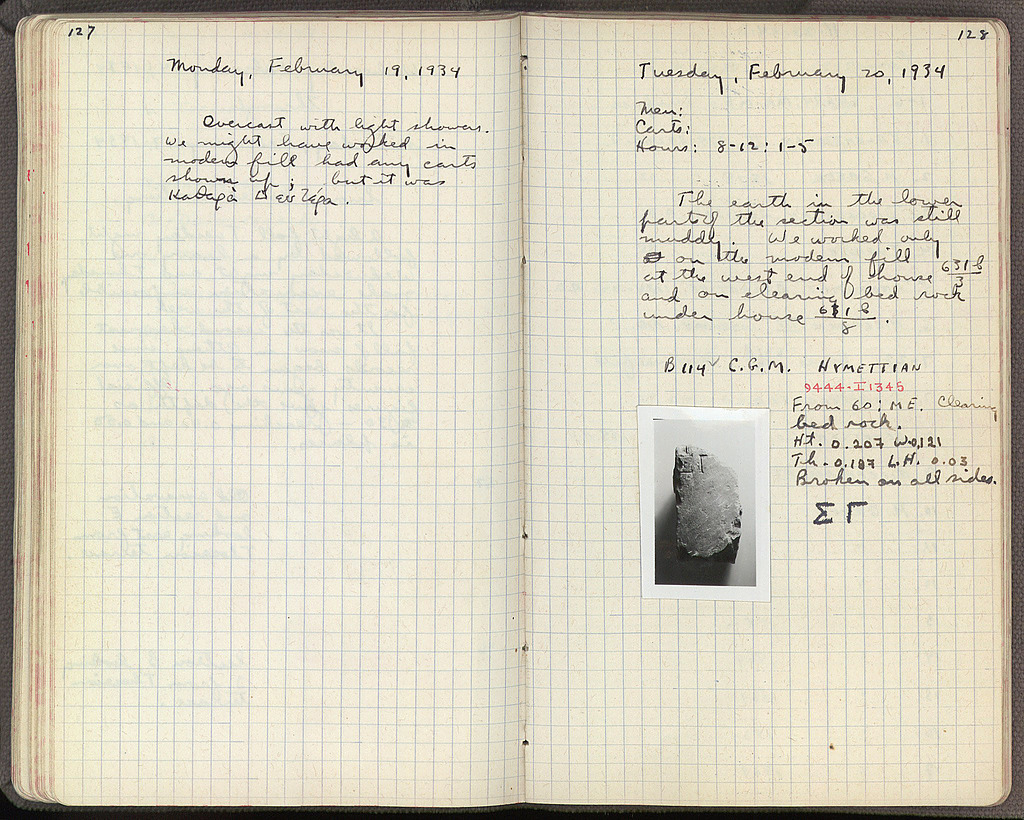 127
Monday, February 19, 1934
Overcast with light showers.
We might have worked in
modern fill had any carts
shown up; but it was
Καθαρὰ Δευτέρα.
128
Tuesday, February 20, 1934
Men:
Carts:
Hours: 8-12: 1-5
The earth in the lower
part of the section was still
muddy. We worked only
on the modern fill
at the west end of house 631b/3
and on clearing bed rock
under house 631b/8.
B 114 ✓ C.G.M. HYMETTIAN
9444-I 1345
From 60: ME. Clearing
bed rock.
Ht. 0.207 W. 0.121
Th. 0.187 L.H. 0.03
Broken on all sides.
ΣΓ